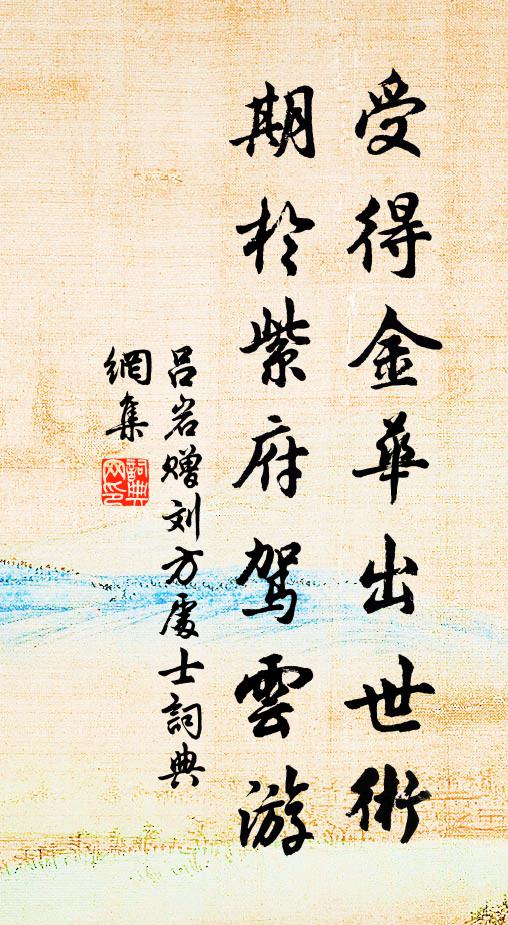 受得金華出世術
期於紫府駕雲游
吕岩赠刘方處士詞典
網集
詞典
网印